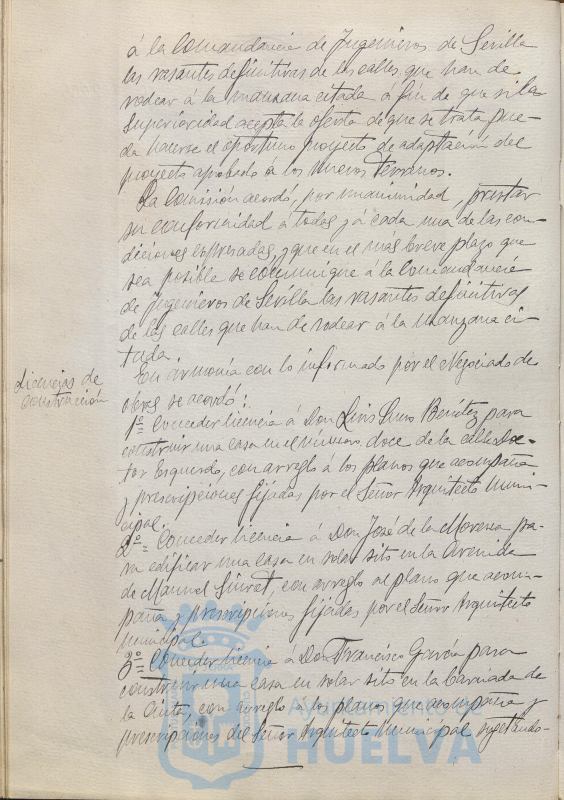 á la Comandancia de Ingenieros de Sevilla
las rasantes definitivas de las calles que han de
rodear á la manzana citada á fin de que si la
Superioridad acepta la oferta de que se trata pue-
da hacerse el oportuno proyecto de adaptación del
proyecto aprobado á los nuevos terrenos.
La Comisión acordó, por unanimidad, prestar
su conformidad á todas y á cada una de las con-
diciones expresadas, y que en el más breve plazo que
sea posible se comunique á la Comandancia
de Ingenieros de Sevilla las rasantes definitivas
de las calles que han de rodear á la manzana ci-
tada.
Licencias de
construcción
En armonía con lo informado por el Negociado de
obras se acordó:
1º = Conceder licencia á Don Luis Benítez para
construir una casa en el número doce de la calle Doc-
tor Esquerdo, con arreglo á los planos que acompaña
y prescripciones fijadas por el Señor Arquitecto Muni-
cipal.
2º = Conceder licencia á Don José de la pa-
ra edificar una casa en solar sito en la Avenida
de Manuel Siurot, con arreglo al plano que acom-
paña y prescripciones fijadas por el Señor Arquitecto
Municipal.
3º = Conceder licencia á Don Francisco García para
construir una casa en solar sito en la Barriada de
la Cinta, con arreglo á los planos que acompaña y
prescripciones del Señor Arquitecto Municipal sujetando-
Ayuntamiento de
HUELVA